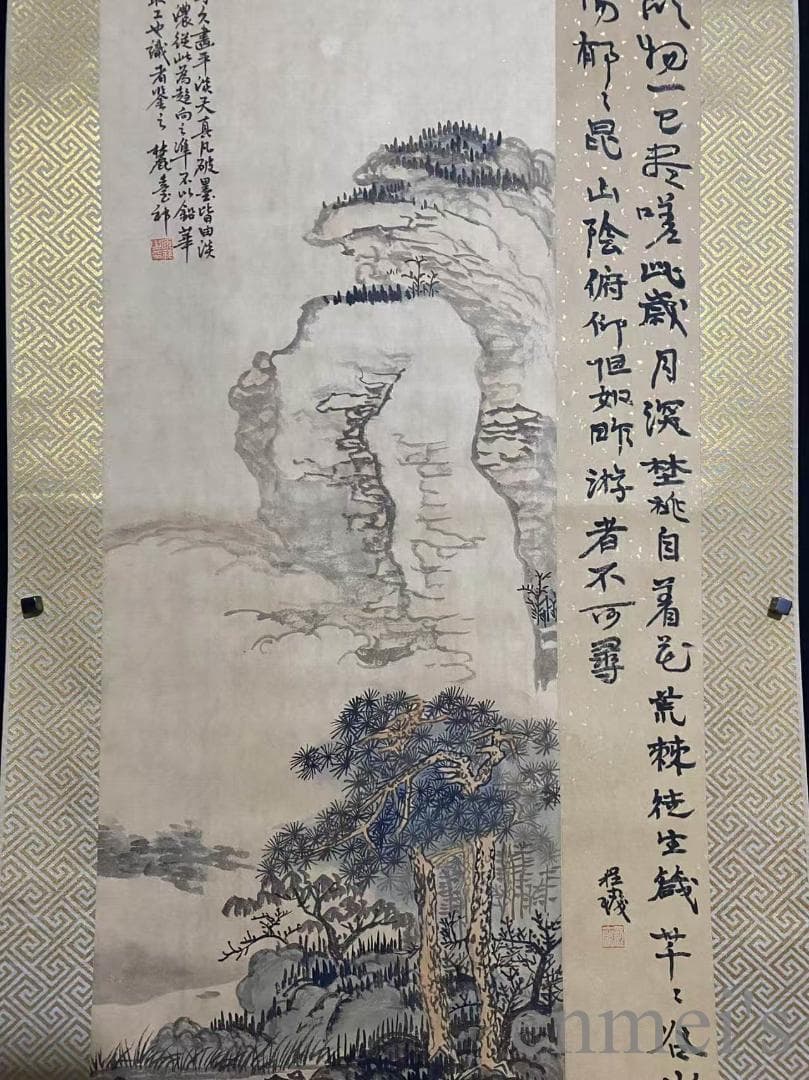 物一已尽嗟此歲月深埜桃自着花荒棘徒生箴芊〻谷
郁〻昆山陰俯仰但如昨游者不可尋
程
久畫平淡天真凡破墨皆由淡
濃從此為趨向之準不以鉛華
工也識者鑒之 麓臺祁
cnmei's